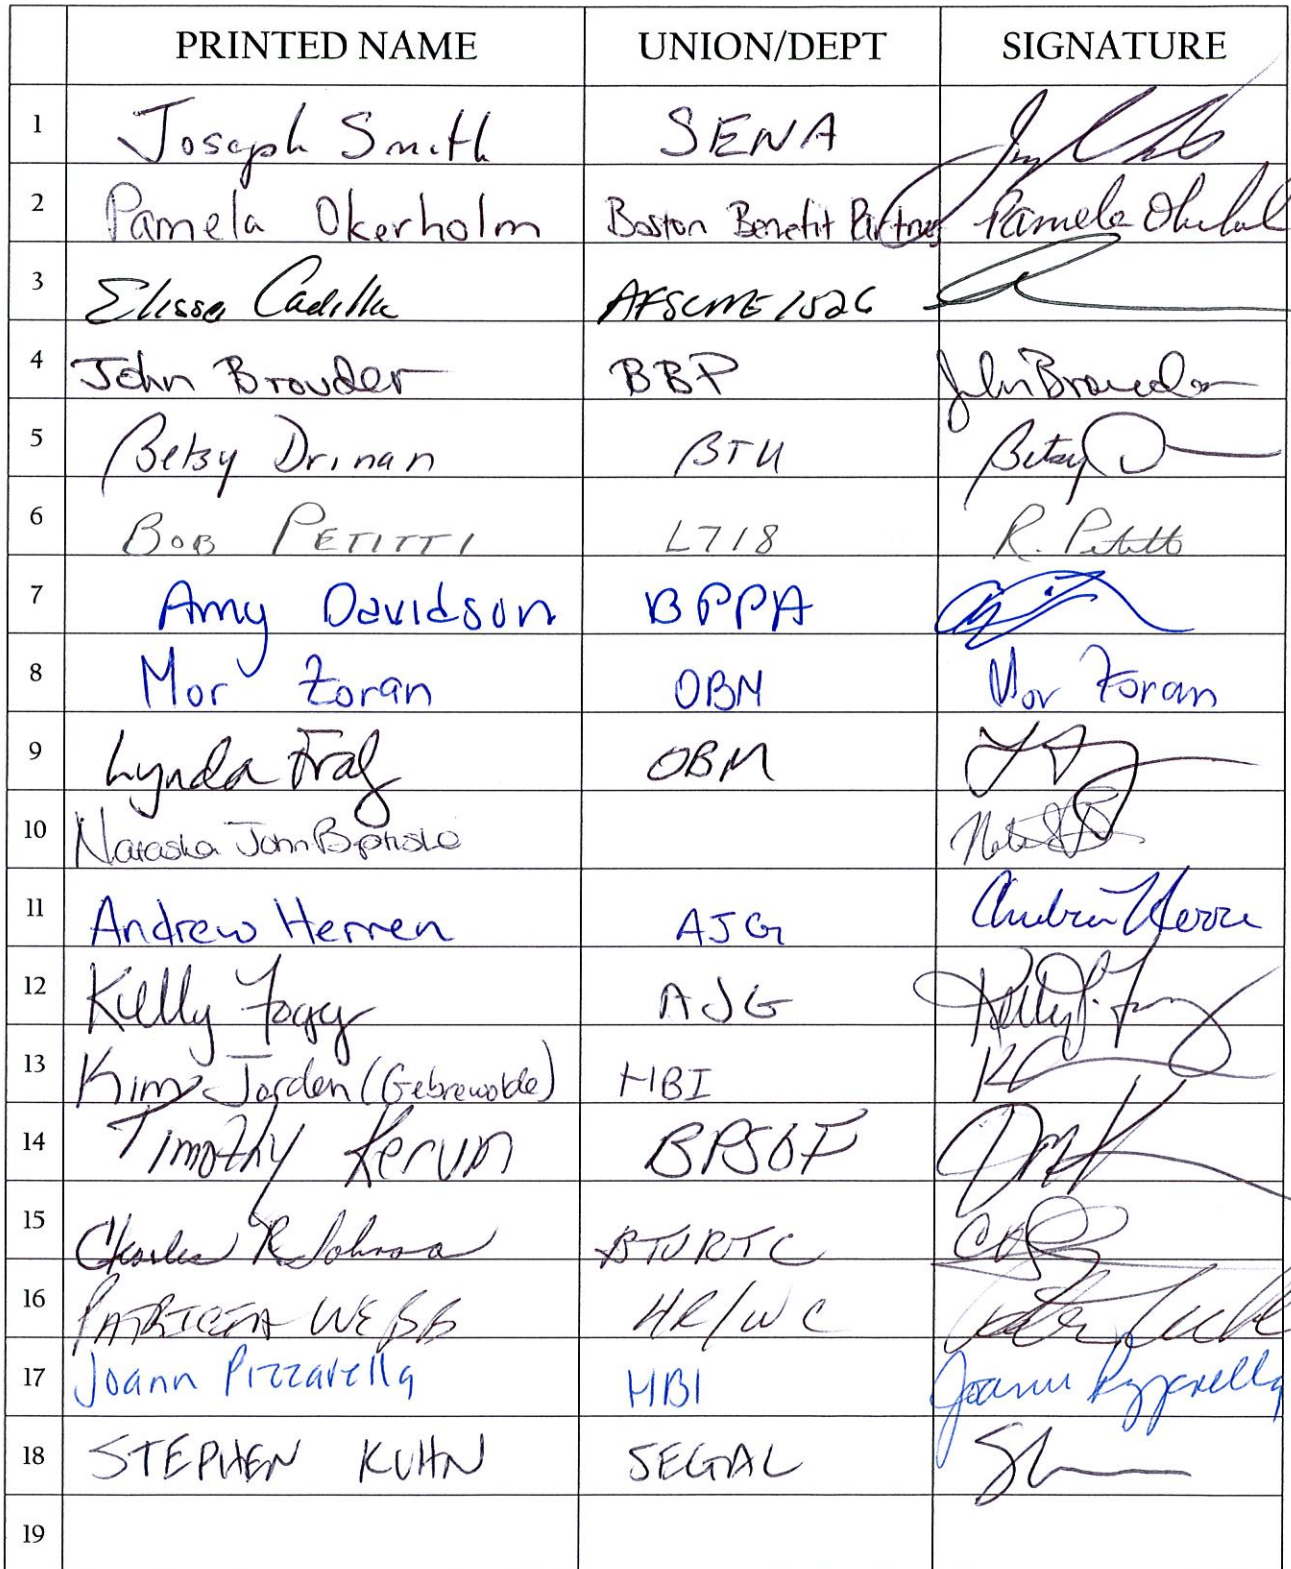 PRINTED NAME UNION/DEPT SIGNATURE
1 Joseph Smith SENA
2 Pamela Okerholm Boston Benefit Partners Pamela
3 Elissa Cadillic AFSCME 1526
4 John Browder BBP John Browder
5 Betsy Drinan BTU Betsy D
6 BOB PETITTI L718 R. Petitti
7 Amy Davidson BPPA
8 Mor Zoran OBM Mor Zoran
9 Lynda Fraley OBM
10 Natasha John Baptiste
11 Andrew Herren AJG Andrew Herren
12 Kelly Fogg AJG Kelly
13 Kim Jorden (Gebrewolde) HBI
14 Timothy Kervin BPSOF
15 Charles R Johnson BTU RTC
16 PATRICIA WEBB HR/WC
17 Joann Pizzarella HBI Joann Pizzarella
18 STEPHEN KUHN SEGAL
19